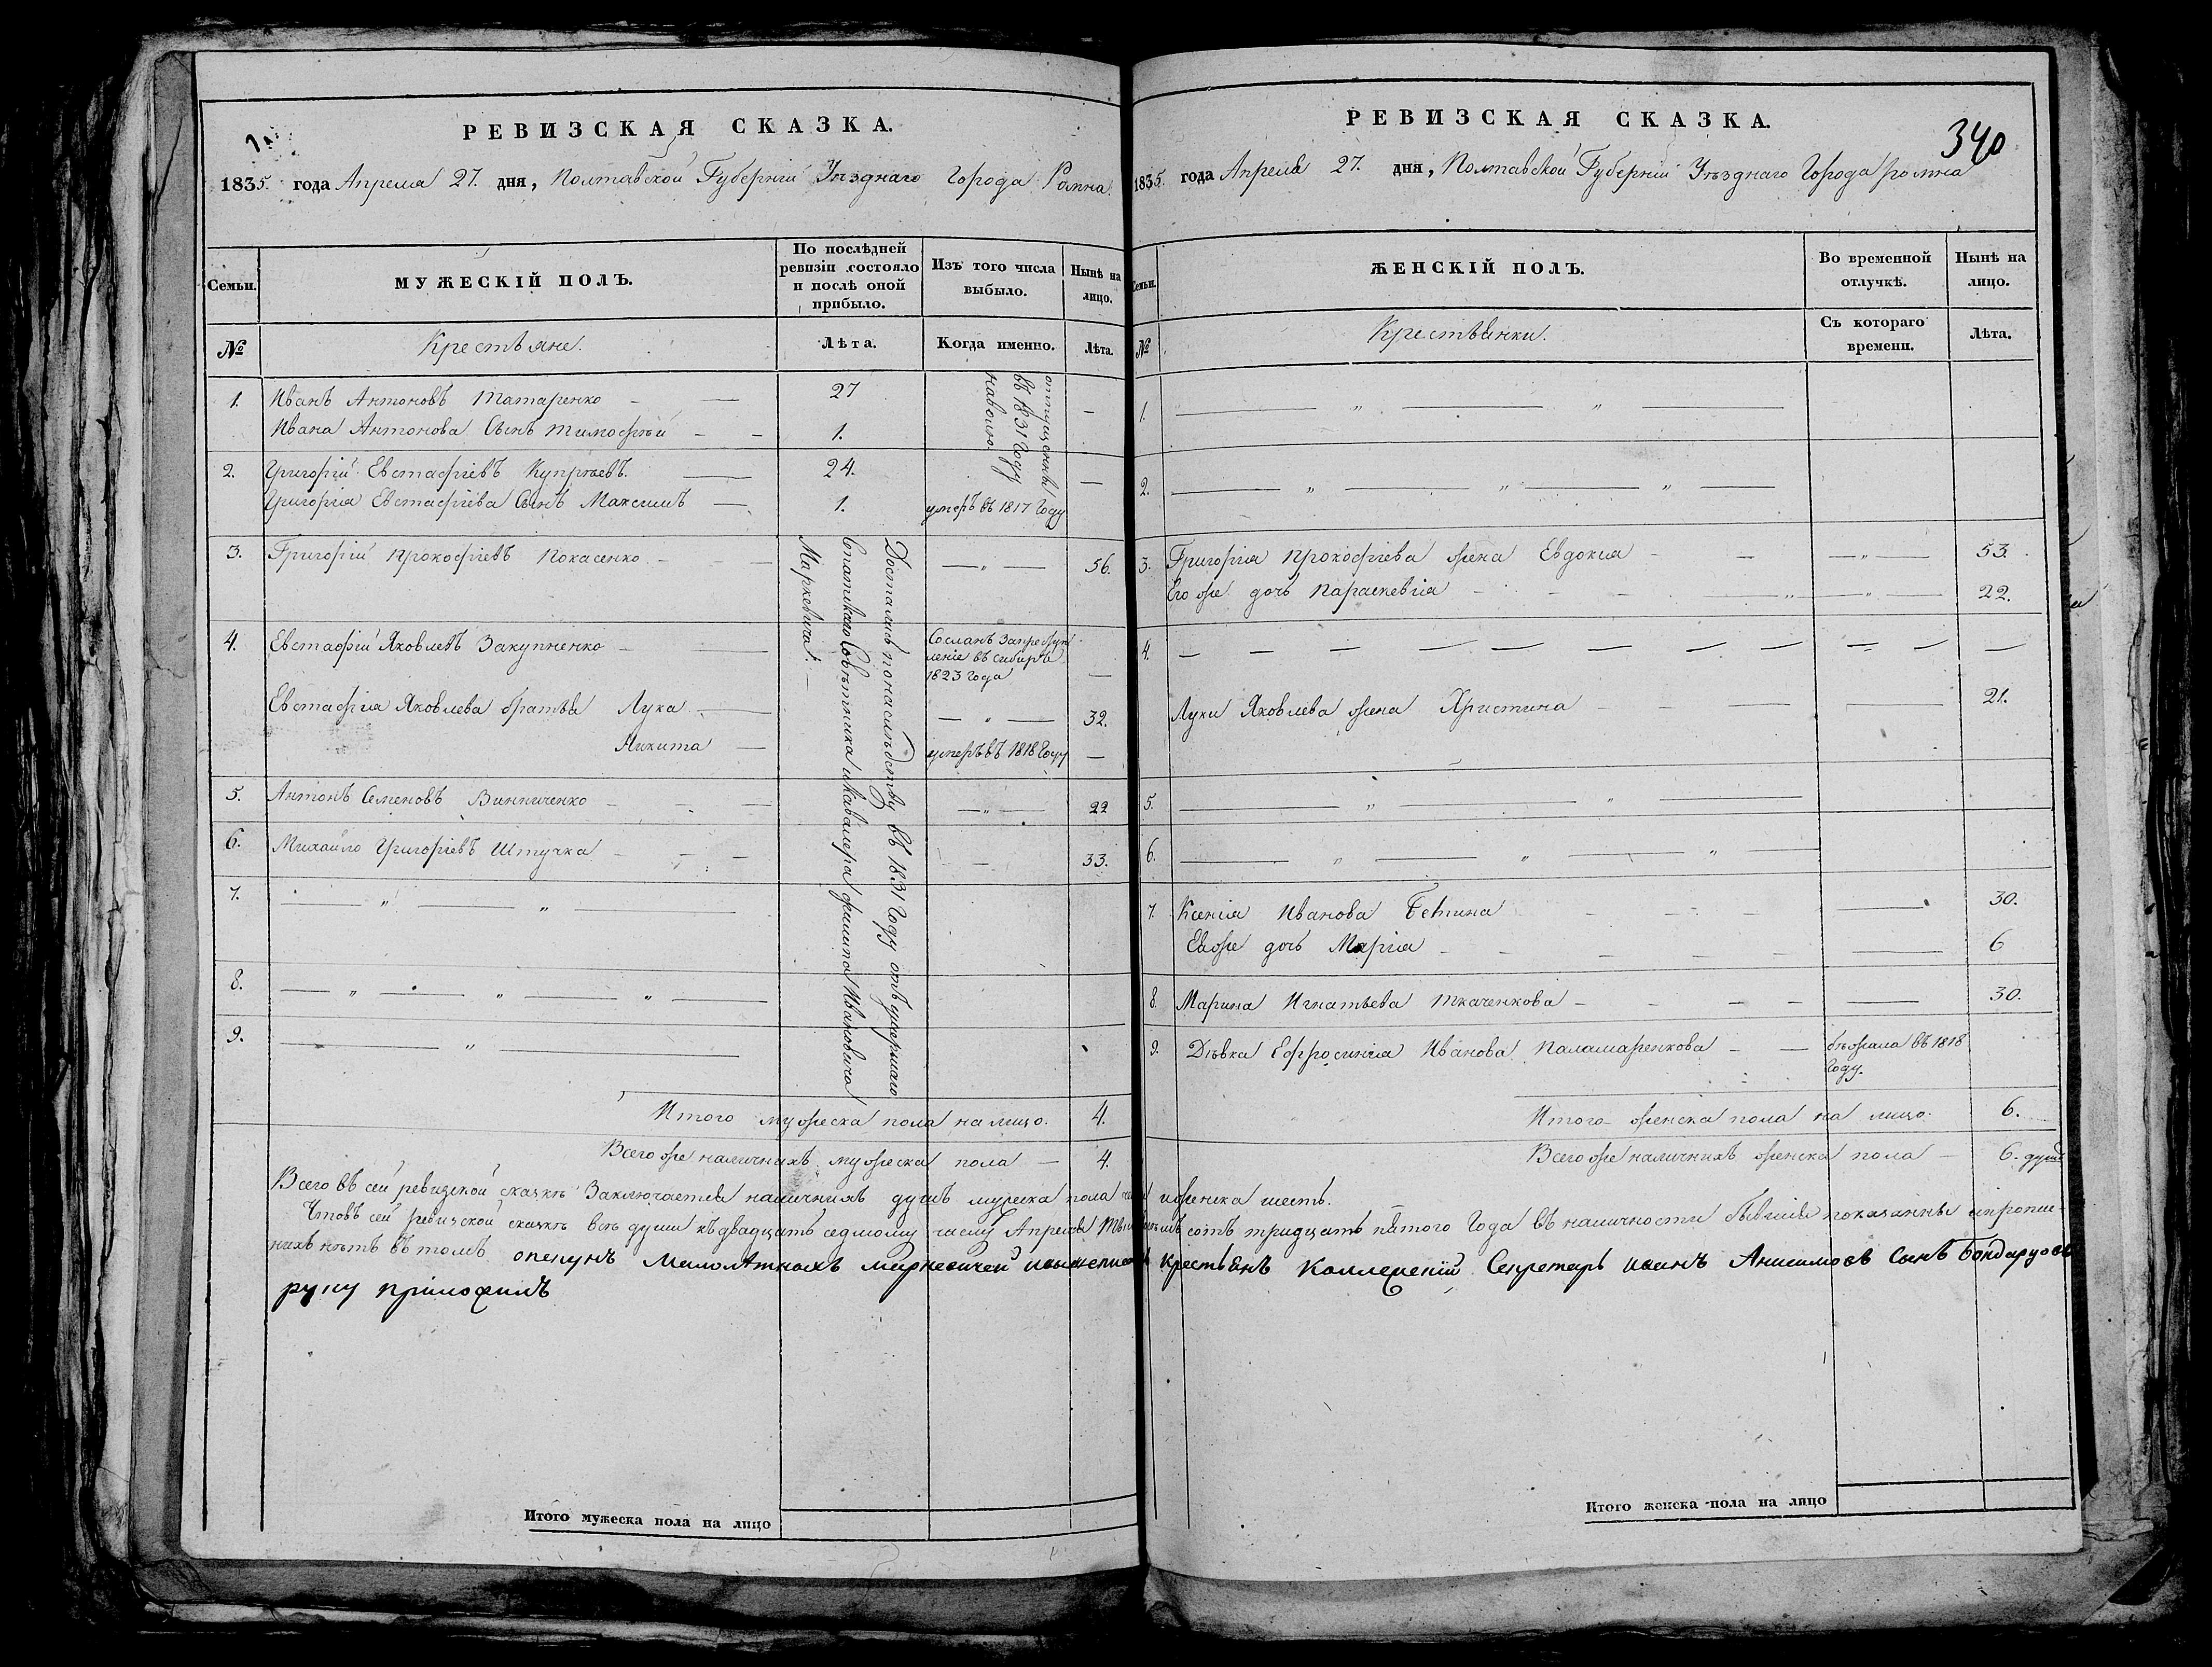 РЕВИЗСКАЯ СКАЗКА.
1835. года Апреля 27. дня, Полтавской Губерніи Уѣзднаго Города Ромна.
Семьи.
МУЖЕСКІЙ ПОЛЪ.
По послѣдней ревизіи состояло и послѣ оной прибыло.
Изъ того числа выбыло.
Нынѣ на лицо.
№
Крестьяне.
Лѣта.
Когда именно.
Лѣта.
1. Иванъ Антоновъ Татаренко — 27 —
Ивана Антонова Сынъ Тимофѣй — 1.
отпущенны
въ 1831 Году
наволю.
2. Григорій Евстафіевъ Купрѣевъ. — 24. —
Григорія Евстафіева Сынъ Максимъ — 1. умеръ въ 1817 Году
3. Григорій Прокофіевъ Покасенко — „ — 56.
Достались понаслѣдству въ 1831 Году отъ умершаго
Статскаго Совѣтника икавалера филипа Ивановича
Маркевича. —
4. Евстафій Яковлевъ Закупненко — Сосланъ запреступ
леніе въ сибирь
1823 года —
Евстафія Яковлева братья Лука — „ — 32.
Никита — умеръ въ 1818 Году —
5. Антонъ Семеновъ Винниченко — „ — 22
6. Михайло Григоріевъ Штучка — 33.
7. — „ — „ —
8. — „ — „ — „ —
9. — „ —
Итого мужеска пола на лицо. 4.
Всегоже наличнихъ мужеска пола — 4.
РЕВИЗСКАЯ СКАЗКА.
340
1835. года Апреля 27. дня, Полтавской Губерніи Уѣзднаго Города Ромна
Семьи.
ЖЕНСКІЙ ПОЛЪ.
Во временной отлучкѣ.
Нынѣ на лицо.
№
Крестьянки.
Съ котораго времени.
Лѣта.
1. — „ — „ —
2. — „ — „ — „ —
3. Григорія Прокофіева жена Евдокия — „ — 53.
Его же дочь Параскевія — „ — 22.
4. — — — — — — — — —
Луки Яковлева жена Христина — 21.
5. — „ — „ —
6. — „ — „ — „ —
7. Ксенія Иванова — 30.
Еяже дочь Марія — 6
8. Марина Игнатьева Ткаченкова — 30.
9. Дѣвка Ефросинія Иванова Паламаренкова — бѣжала въ 1818
Году.
Итого женска пола на лицо. 6.
Всегоже наличнихъ женска пола — 6. душъ
Всего въ сей ревизской сказкѣ Заключается наличнихъ душъ мужеска пола иженска шесть.
Чтовъ сей ревизской сказкѣ всѣ души къ двадцать седмому числу Апреля сотъ тридцать пятого Года въ наличности бывшія показанны ипропис-
нихъ нѣтъ въ томъ опекунъ Малолѣтнихъ Маркевичей крестьянъ Коллежскій Секретарь иванъ Анисимовъ Сынъ Бондаруовъ
руку приложилъ
Итого мужеска пола на лицо
Итого женска пола на лицо